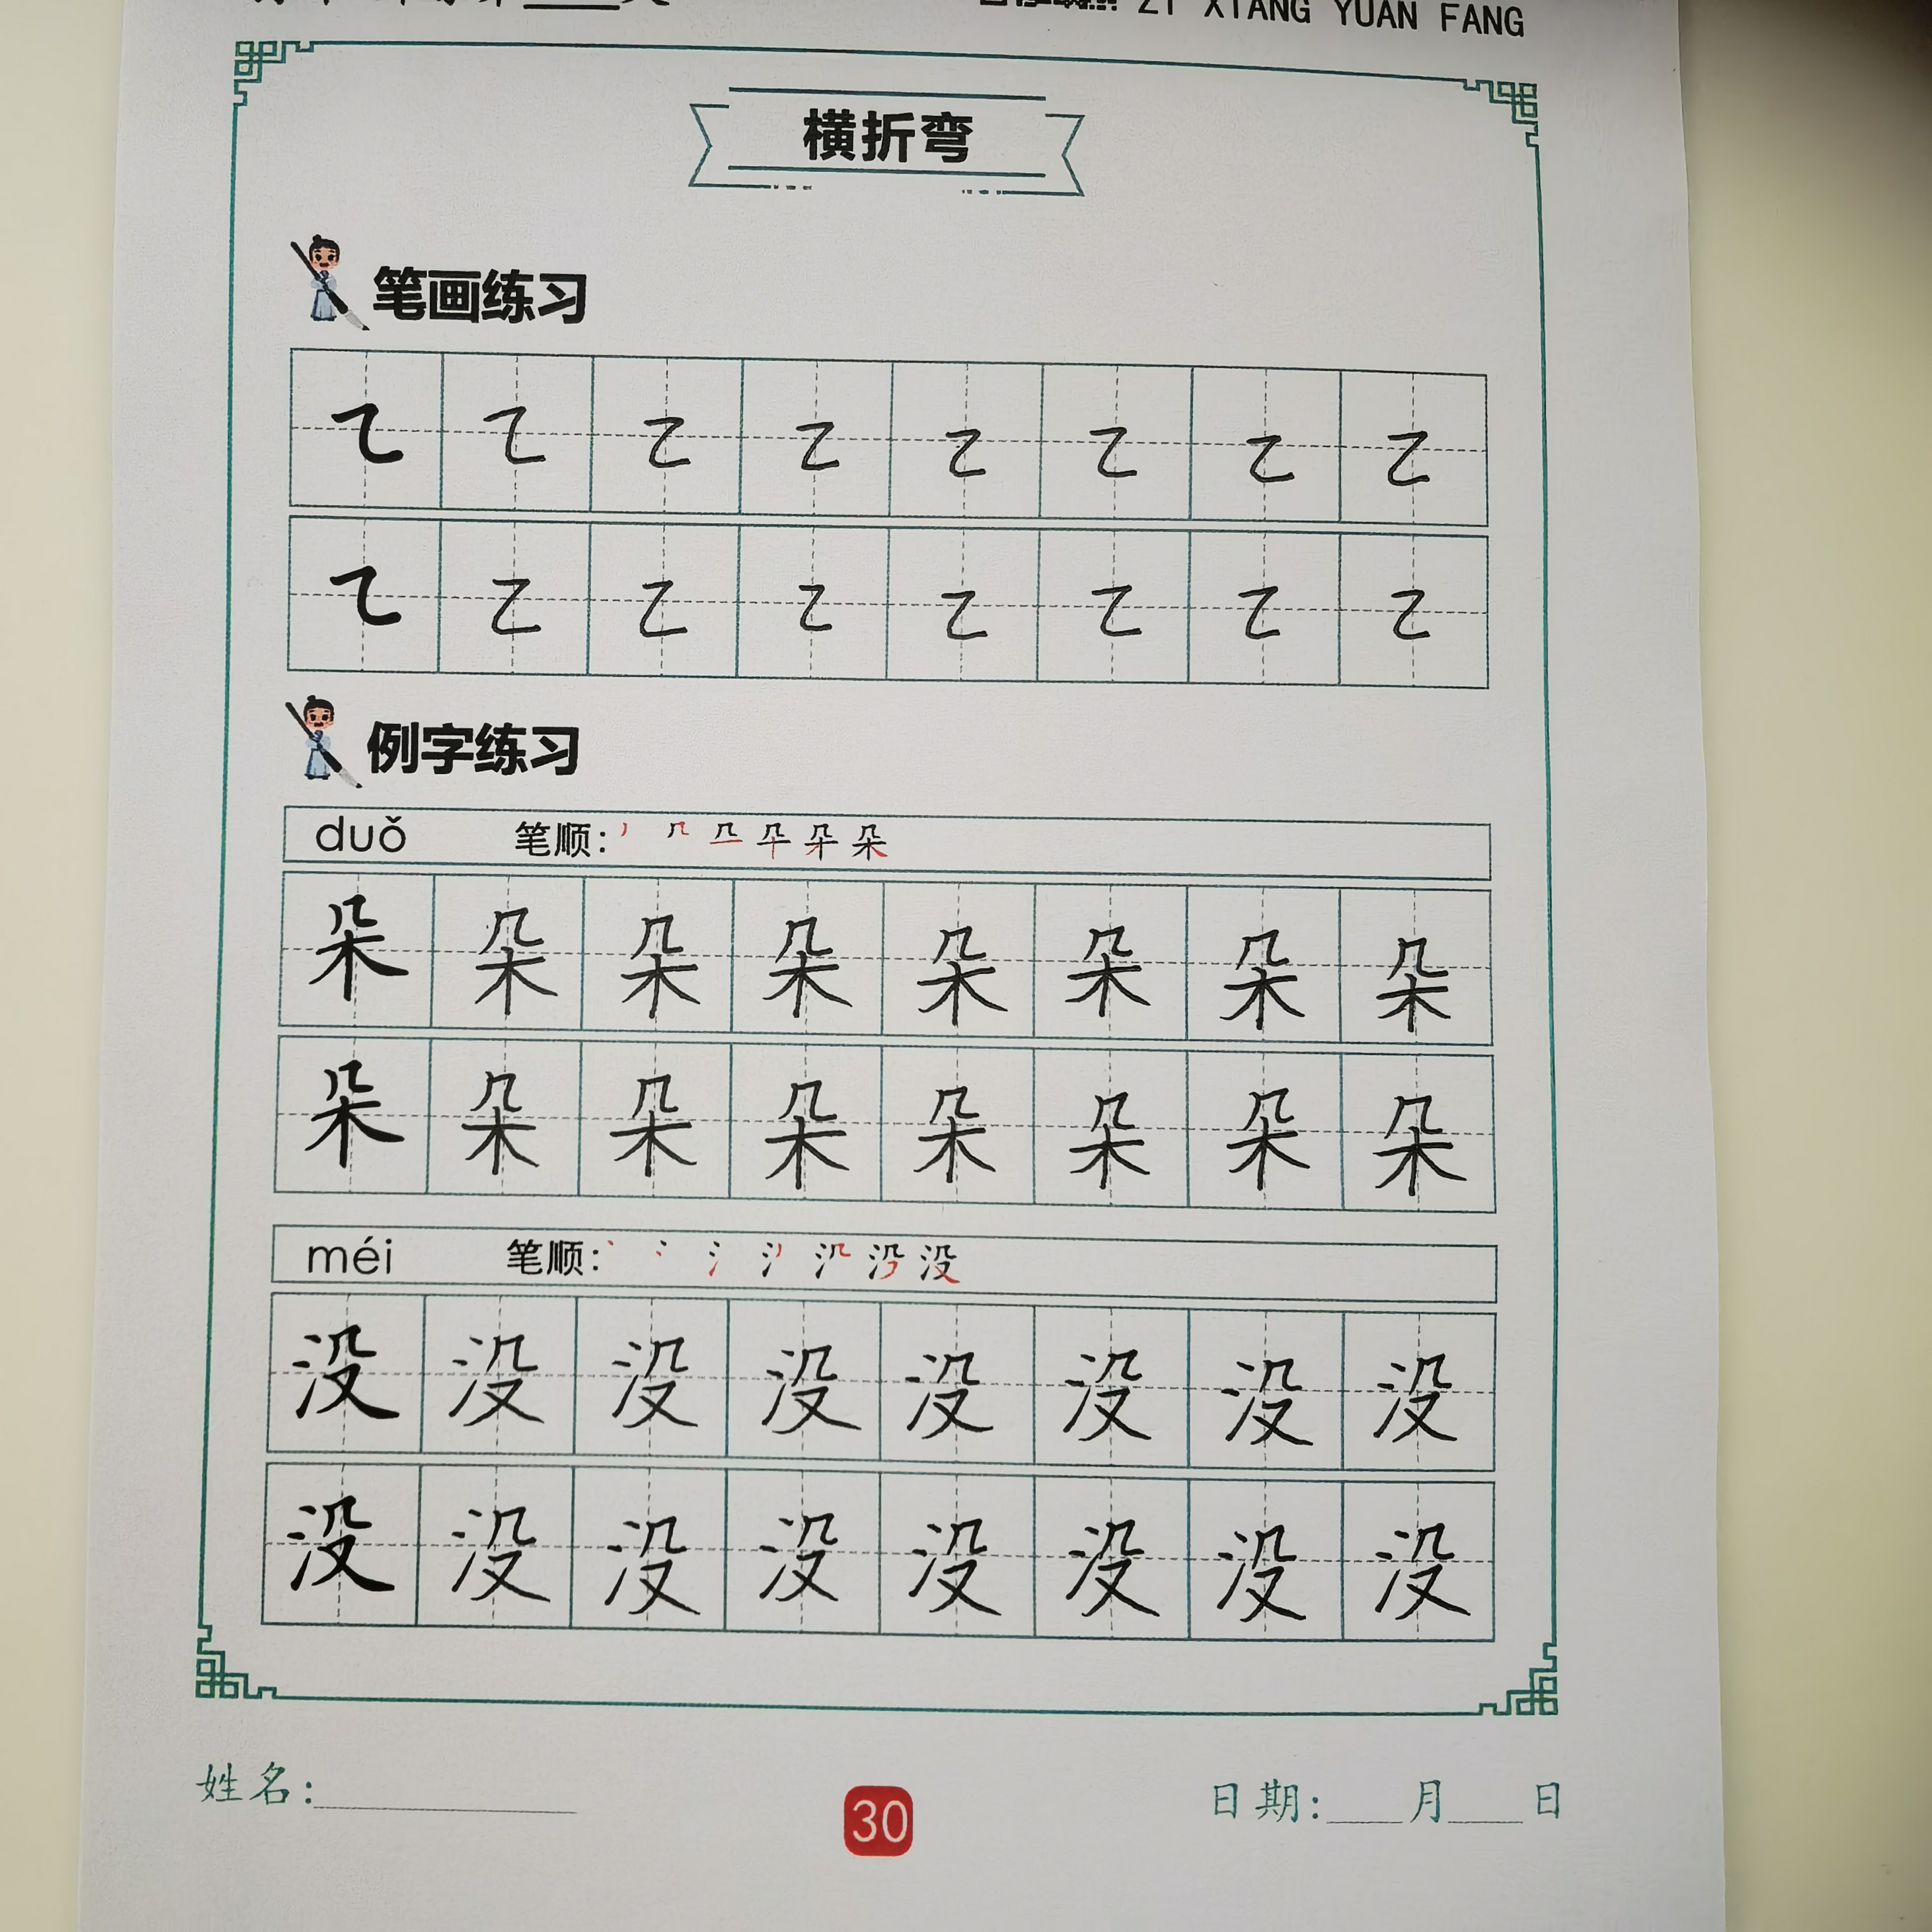 ZI XIANG YUAN FANG
横折弯
笔画练习
㇍ ㇍ ㇍ ㇍ ㇍ ㇍ ㇍ ㇍
㇍ ㇍ ㇍ ㇍ ㇍ ㇍ ㇍ ㇍
例字练习
duǒ 笔顺: 朵
朵 朵 朵 朵 朵 朵 朵 朵
朵 朵 朵 朵 朵 朵 朵 朵
méi 笔顺: 没
没 没 没 没 没 没 没 没
没 没 没 没 没 没 没 没
姓名:
30
日期:___月___日